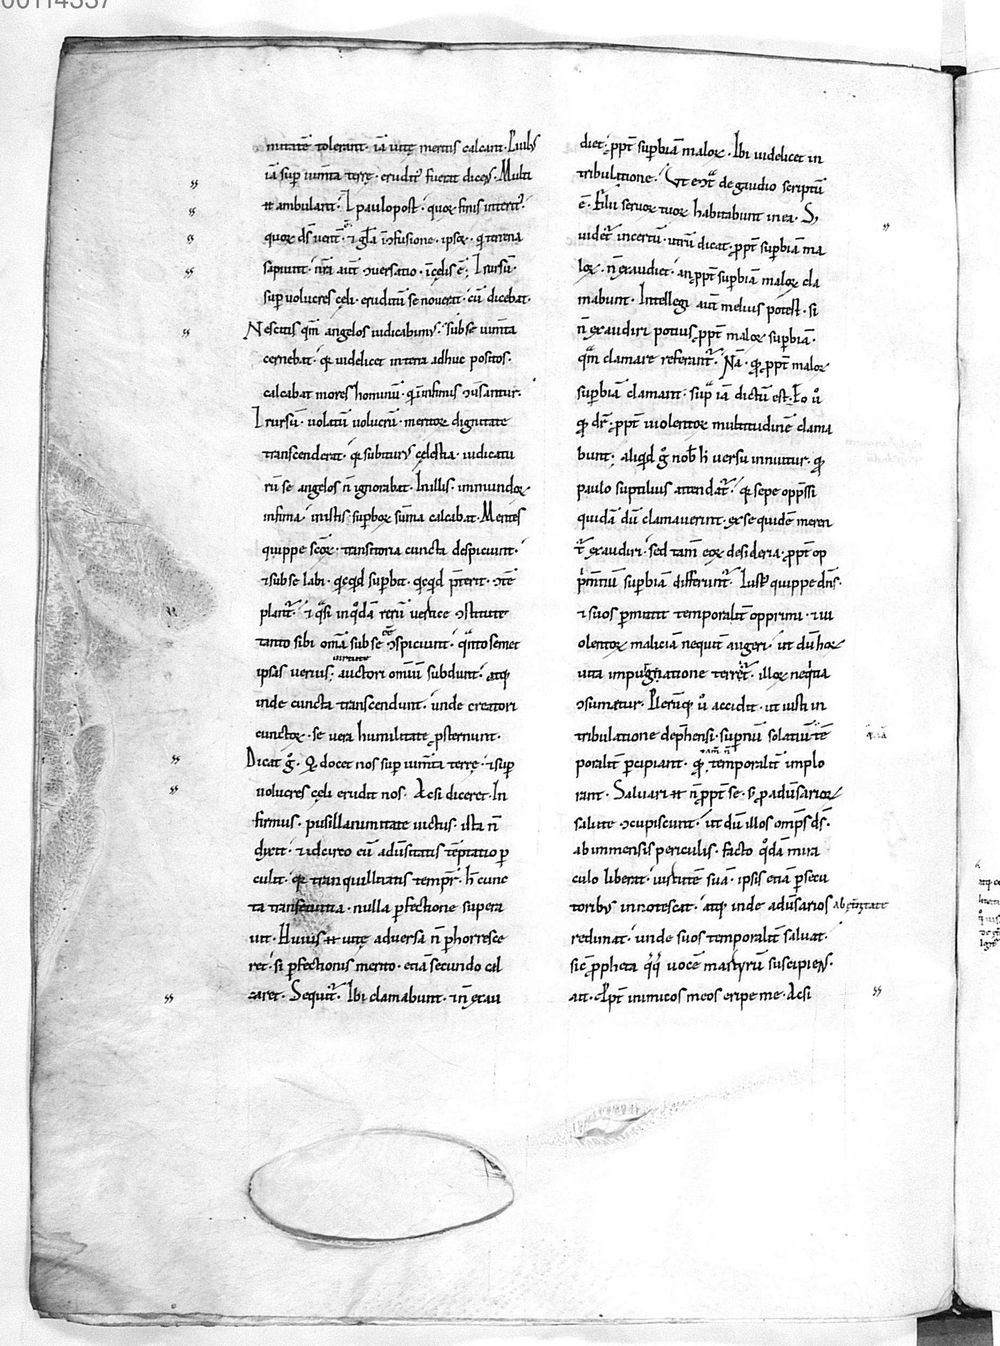 00114337
mitatē tolerant· iā uitę meritis calcant· Quib;
iā sup̄ iumta terrę· erudit' fuerat dicens· Multi
ambulant· paulopost· quor finis interit'·
quor d̄s uent̄· & gl̄a cōfusione· ipsor· q̄ terrena
sapiunt· nr̄a aut̄ ɔuersatio· ī cęlis ē· Irursū·
sup uolucres cęli· eruditū se nouerat· cū dicebat·
Nescitis qm̄ angelos iudicabim'· Sub se iumta
cernebat· q̨ uidelicet in terra adhuc positos·
calcabat mores hominū· q̄ īfimis ɔuersantur·
Irursū· uolatū uolucrū· meritor dignitate
transcenderat· q̨ subitur' cęlestia· iudicatu
rū se angelos n̄ ignorabat· In illis· immundor
infima· in istis· suꝑbor sūma calcabat· Mentes
quippe sc̄or· transitoria cuncta despiciunt·
& sub se labi· q̄cq̄d suꝑbit· q̄cq̄d p̄terit· ɔtē
plant̄· & q̄si in q̄dā rerū uertice ɔstitute
tanto sibi om̄ia sub se ɔspiciunt· q̄nto semet
ipsas uerius· auctori omīū subdunt· atq̨
inde cuncta transcendunt· unde creatori
cunctor· se uera humilitate ꝓsternunt·
Dicat g̊· Q̨ docet nos sup iumta terrę· & sup
uolucres cęli erudit nos· Ac si diceret· In
firmus· pusillanimitate uictus· ista n̄
dixit· & idcirco cū aduersitatis tēptatio ꝑ
culit· q̨ tranquillitatis tempr̄· hęc cunc
ta transeuntia· nulla ꝑfectione supera
uit· Huius uitę aduersa n̄ ꝑhorresce
ret· si ꝑfectionis merito· etiā secundo cal
caret· Sequit̄· Ibi clamabunt· & n̄ exau
diet· ꝓpt̄ suꝑbiā malor· Ibi uidelicet in
tribulatione· Vt ecōt̄ de gaudio scriptū
ē· Filii seruor tuor habitabunt in ea· S;
uidet̄ incertū· utrū dicat· ꝓpt̄ suꝑbiā ma
lor· n̄ exaudiet· an ꝓpt̄ suꝑbiā malor cla
mabunt· Intellegi aut̄ melius potest· si
n̄ exaudiri potius ꝓpt̄ malor suꝑbiā·
q̄m clamare referant̄· Nā· q̨ ꝓpt̄ malor
suꝑbiā clamant· sup̄ iā dictū est· Eo u̅
q̨ dr̄· ꝓpt̄ uiolentor multitudinē clama
bunt· aliq̄d g̊ nob̄ h̄ uersu innuitur· q̨
paulo suptilius attendat̄· q̨ sepe opp̄ssi
quidā dū clamauerint· ex se quidē meren
t̄ exaudiri· sed tam̄ eor desideria· ꝓpt̄ op
p̄mtiū suꝑbiā differunt̄· Iust' quippe dn̄s·
& suos ꝑmittit temporalit̄ opprimi· & ui
olentor maliciā nequit̄ augeri· ut dū hor
uita impugnatione terret̄· illor neq̄tia
ɔsumatur· Plerūq̨ u̅ accidit· ut iusti in
tribulatione dep̄hensi· suꝑnū solatiū tē
poralit̄ ꝑcipiant· q̨ tam̄ n̄ temporalit̄ implo
rant· Saluari n̄ ꝓpt̄ se· s; ꝓ aduersarior
salute ɔcupiscunt· ut dū illos omp̄s d̄s·
ab immensis periculis· facto q̊dā mira
culo liberat· uirtutē suā· ipsis etiā ꝑsecu
toribus innotescat· atq̨ inde aduersarios ab
redimat· unde suos temporalit̄ saluat·
sic ꝓpheta q̊q̨ uocē martyrū suscipiens·
ait· Ꝓpt̄ inimicos meos eripe me· Ac si